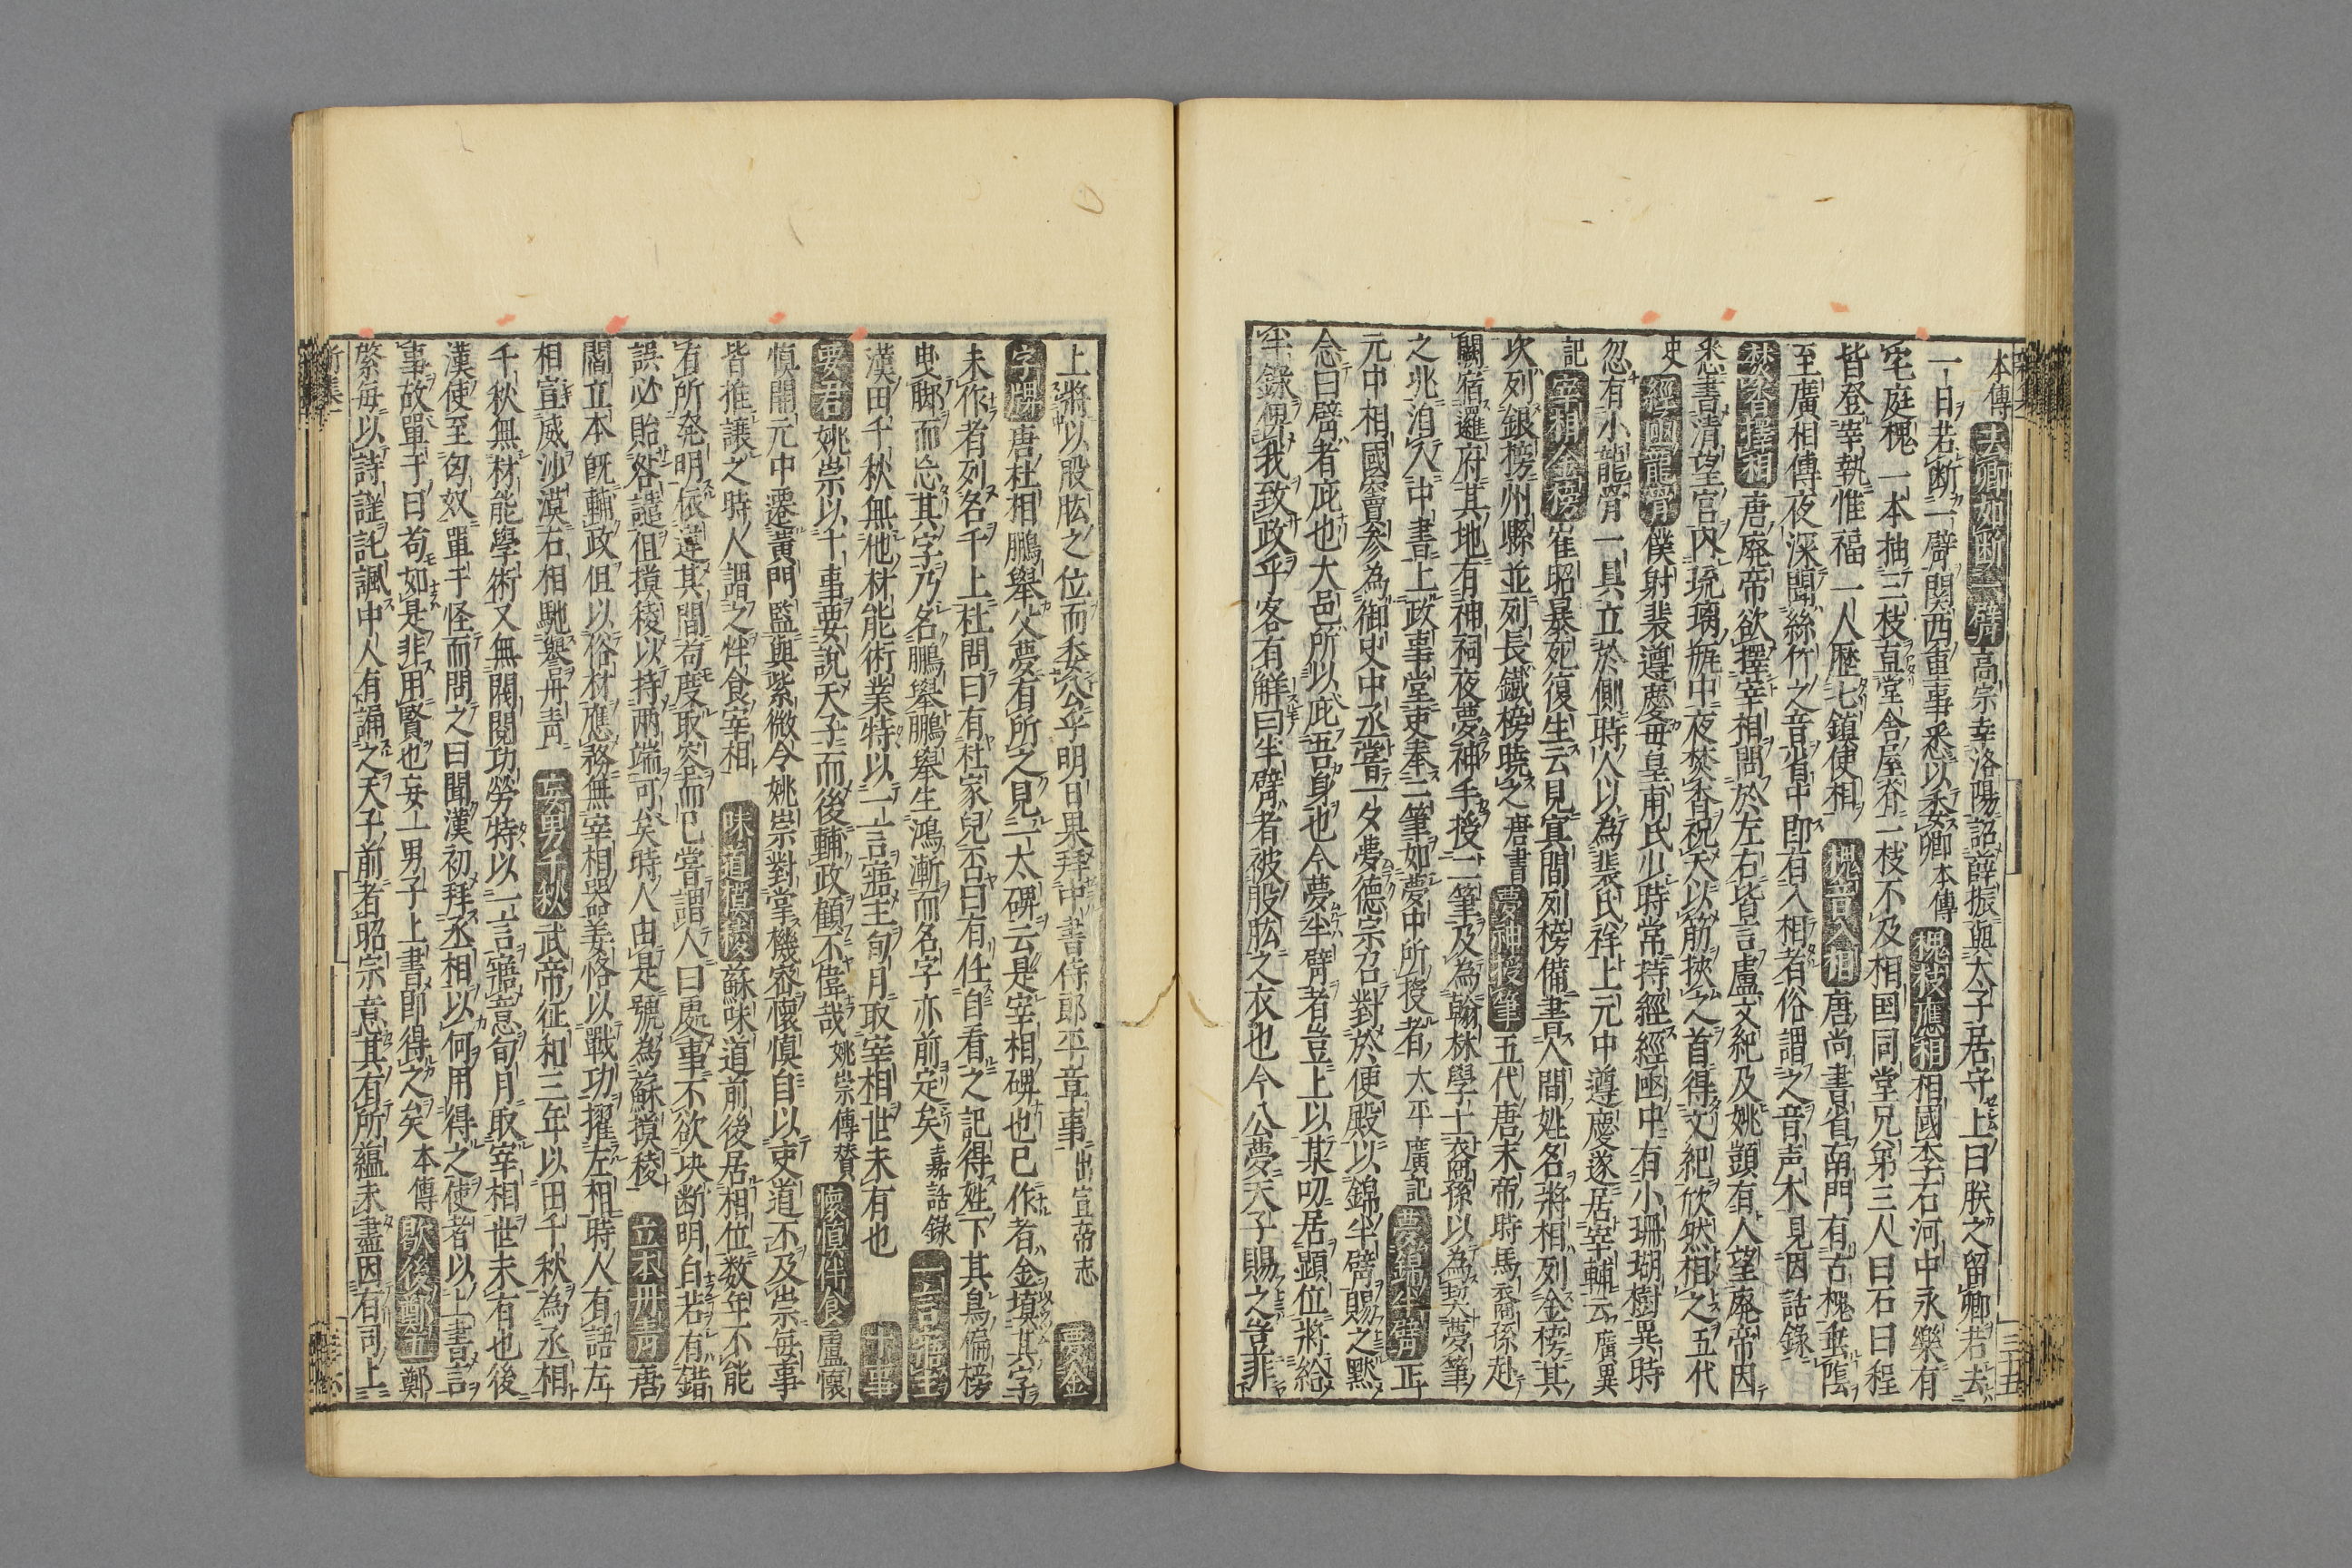 本傳 去卿如斷一臂 高宗幸洛陽詔薛振與太子居守上曰朕之留卿若去
一日若断一臂関西重事悉以委卿 本傳 槐枝應相 相國李石河中永樂有
宅庭槐一本抽三枝直堂舎屋脊一枝不及相国同堂兄弟三人曰石曰程
皆登宰執惟福一人歴七鎮使相 槐音入相 唐尚書省南門有古槐垂蔭
至廣相傳夜深聞絲竹之音省中即有入相者俗謂之音声木見因話錄
焚香擇相 唐廃帝欲擇宰相問於左右皆言盧文紀及姚顗有人望廃帝因
悉書清望官内琉璃瓶中夜焚香祝天以筋挾之首得文紀欣然相之五代
史 經函龍骨 僕射裴遵慶毋皇甫氏少時常持經經函中有小珊瑚樹異時
忽有小龍骨一具立於側時人以為裴氏祥上元中遵慶遂居宰輔云 廣異
記 宰相金榜 崔昭暴死復生云見冥間列榜備書人間姓名將相列金榜其
次列銀榜州縣並列長鐵榜暁之唐書 夢神授筆 五代唐末帝時馬裔孫赴
闕宿邏府其地有神祠夜夢神手授二筆及為翰林學士裔孫以為契夢筆
之兆洎入中書上政事堂吏奉二筆如夢中所授者 太平廣記 夢錦半臂 正
元中相國竇參為御史中丞嘗一夕夢德宗召對於便殿以錦半臂賜之黙
念曰臂者庇也大邑所以庇吾身也今夢半臂者豈上以某叨居顕位將給
半錄俾我致政乎客有解曰半臂者被股肱之衣也今公夢天子賜之豈非
上將以殿肱之位而委公乎明日果拜中書侍郎平章事 出宣帝志 夢金
字碑 唐杜相鵬舉父夢有所之見一大碑云是宰相碑也已作者金填其字
未作者列名千上杜問曰有杜家兒否曰有任自看之記得姓下其鳥偏榜
曳脚而忘其字乃名鵬舉鵬舉生鴻漸而名字亦前定矣 嘉話錄 一言寤主
漢田千秋無他材能術業特以一言寤主旬月取宰相世未有也 十事
要君 姚崇以十事要説天子而後輔政顧不偉哉 姚崇傳賛 懷慎伴食 盧懷
慎開元中遷黄門監與紫微令姚崇對掌機密懷慎自以吏道不及崇毎事
皆推譲之時人謂之伴食宰相 味道模稜 蘇味道前後居相位数年不能
有所発明依違其間苟度取容而已嘗謂人曰處事不欲决断明白若有錯
誤必貽咎譴但摸稜以持両端可矣時人由是號為蘇摸稜 立本丹青 唐
閻立本既輔政但以俗材應務無宰相器姜恪以戰功擢左相時人有語左
相宣威沙漠右相馳譽丹青 妄男千秋 武帝征和三年以田千秋為丞相
千秋無材能學術又無閥閲功勞特以一言寤意旬月取宰相世未有也後
漢使至匈奴單于怪而問之曰聞漢初拜丞相以何用得之使者以上書言
事故單于曰苟如是非用賢也妄一男子上書即得之矣 本傳 歇後鄭五 鄭
綮毎以詩謡託諷中人有誦之天子前者昭宗意其有所蘊未盡因有司上